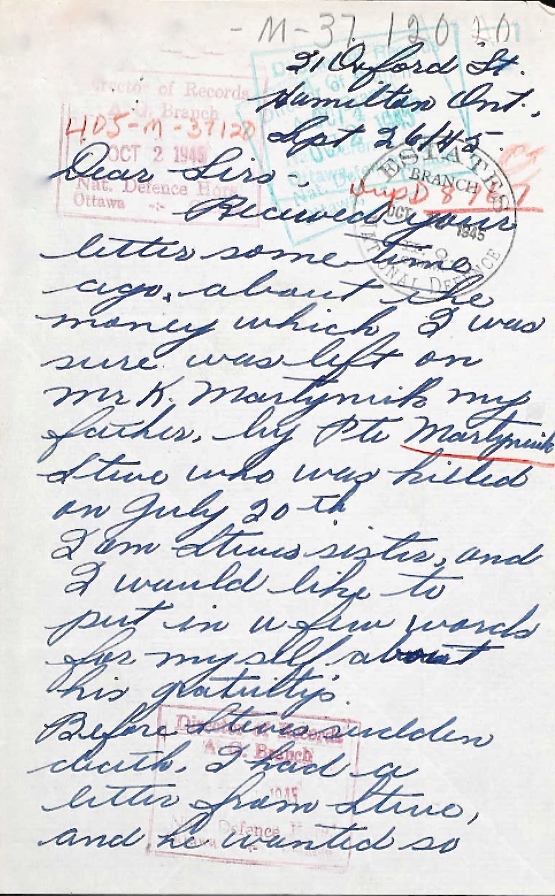 -M-37120 20
21 Oxford St.
Hamilton Ont.,
Sept 26/45.
Director of Records
A. G. Branch
405-M-37120
OCT 2 1945
Nat. Defence Hqrs.
Ottawa
ESTATES
BRANCH
OCT 1945
NATIONAL DEFENCE
Dear Sirs-,
Received your
letter some time
ago, about the
money which I was
sure was left on
Mr K. Martyniuk my
father, by Pte Martyniuk
Steve who was killed
on July 20th
I am Steves sister, and
I would like to
put in a few words
for myself about
his gratuitys.
Before Steves sudden
death, I had a
letter from Steve,
and he wanted so
Director of Records
A. G. Branch
1945
Defence